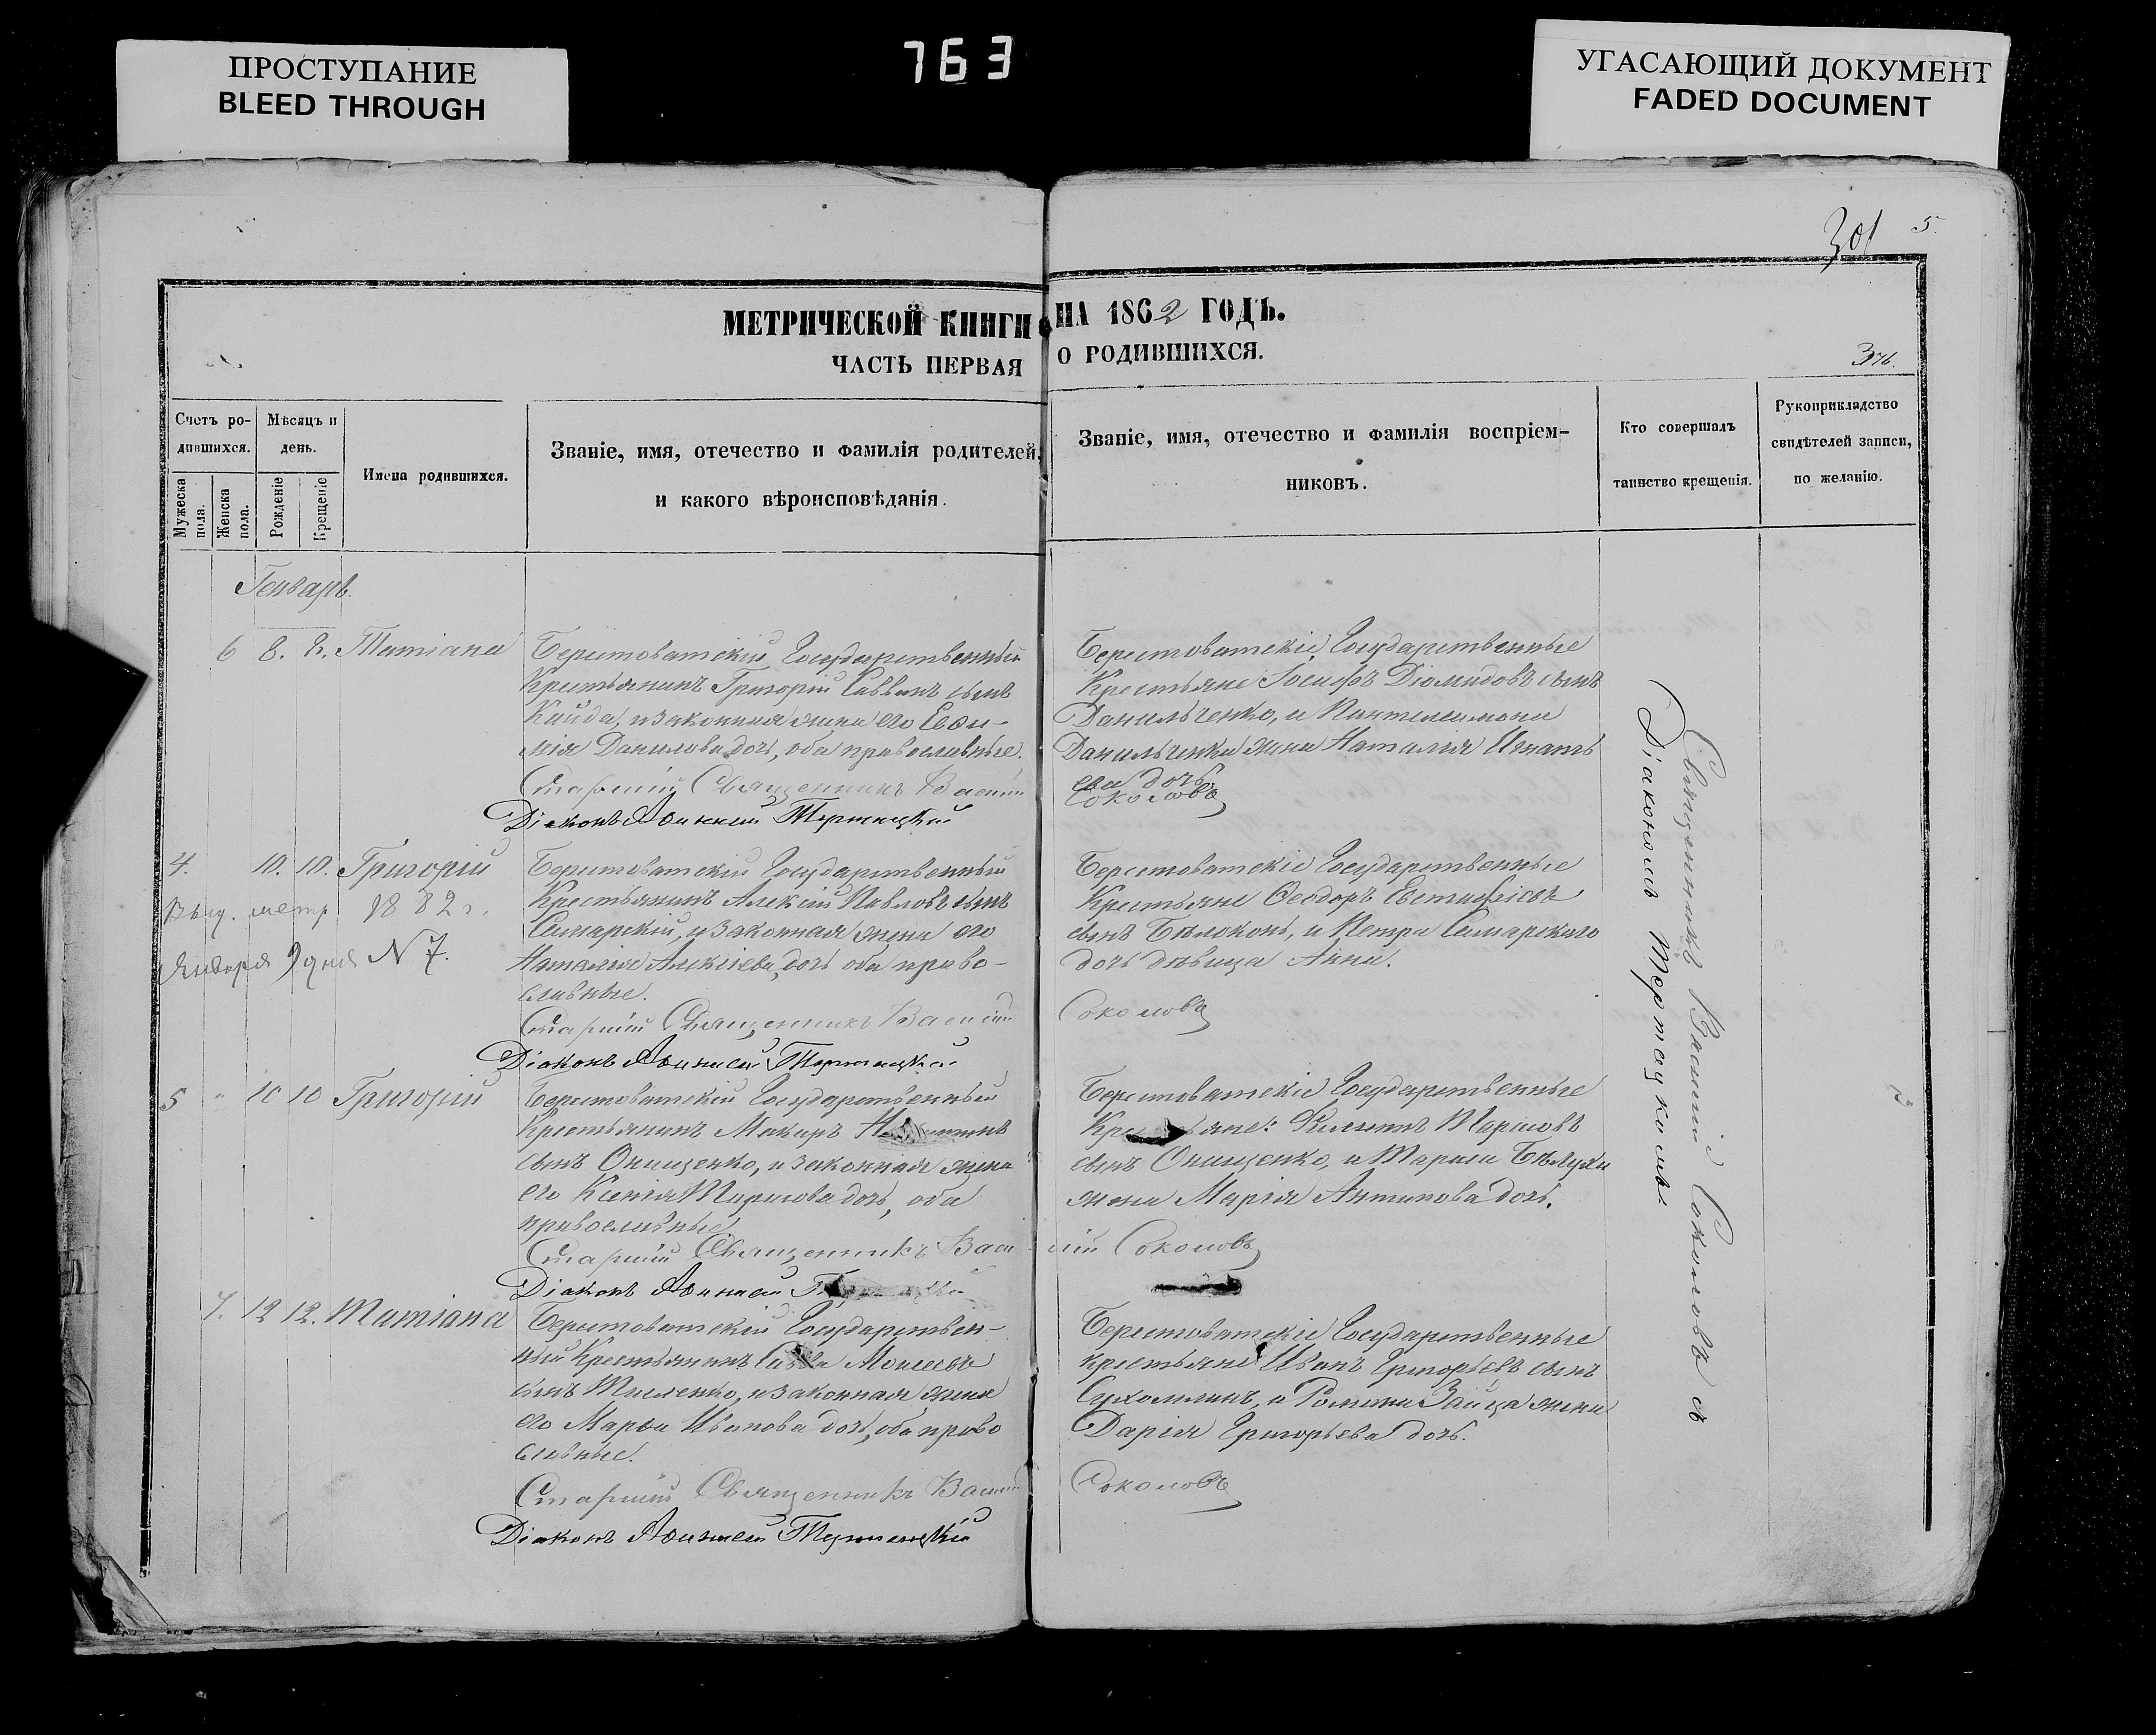 ПРОСТУПАНИЕ
BLEED THROUGH
763
УГАСАЮЩИЙ ДОКУМЕНТ
FADED DOCUMENT
301 5.
МЕТРИЧЕСКОЙ КНИГИ НА 1862 ГОДЪ.
ЧАСТЬ ПЕРВАЯ О РОДИВШИХСЯ.
376.
Счетъ ро-
дившихся.
Мужеска пола.
Женска пола.
Мѣсяцъ и
день.
Рожденіе
Крещеніе
Имена родившихся.
Званіе, имя, отечество и фамилія родителей,
и какого вѣроисповѣданія.
Званіе, имя, отечество и фамилія воспріем-
никовъ.
Кто совершалъ
таинство крещенія.
Рукоприкладство
свидѣтелей записи,
по желанію.
Генварь.
6 8. Татіана
Берестоватскій Государственный
Крестьянинъ Григорій Саввинъ сынъ
Кайда, и законная жена его Евфи-
мія Данилова дочь, оба православные.
Старшій Священникъ Василій
Діаконъ Тертацкій
Берестоватскіе Государственные
Крестьяне Іосифъ Діомидовъ сынъ
Данильченко, и Пантелеимона
Данильченка жена Наталія Игнать
ева дочь.
Соколовъ
4. 10. 10. Григорій
Выд. метр. 1882 г.
Января 9 дня N 7.
Берестоватскій Государственный
Крестьянинъ Алексій Павловъ сынъ
Самарскій, и законная жена его
Наталія Алексіева дочь оба право-
славные.
Старшій Священникъ Василій
Діаконъ Тертацкій
Берестоватскіе Государственные
Крестьяне Ѳеодоръ Евстафіевъ
сынъ Бѣлоконь, и Петра Самарскаго
дочь дѣвица Анна.
Соколовъ
5 " 10 10 Григорій
Берестоватскій Государственный
Крестьянинъ Макаръ
сынъ Онищенко, и законная жена
его Ксенія дочь, оба
православные
Старшій Священникъ Васи
Діаконъ
Берестоватскіе Государственные
сынъ Онищенко, и Тараса Бѣлухи
жена Марія Антипова дочь.
лій Соколовъ
7. 12 12. Татіана
Берестоватскій Государствен-
ный Крестьянинъ Савва Моисеевъ
сынъ Тисленко, и законная жена
его Марѳа Иванова дочь, оба право
славные.
Старшій Священникъ Василій
Діаконъ Тертацкій
Берестоватскіе Государственные
крестьяне Иванъ Григорьевъ сынъ
Сухомлинъ, и Романа Зайца жена
Дарія Григорьева дочь.
Соколовъ
Священникъ Василій Соколовъ съ
Діакономъ Тертацкимъ.